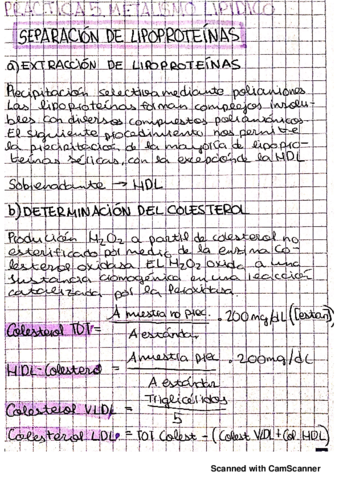 PRÁCTICA 5. METALISMO LIPÍDICO
SEPARACIÓN DE LIPOPROTEÍNAS
a) EXTRACCIÓN DE LIPOPROTEÍNAS
Precipitación selectiva mediante polianiones
Las lipoproteínas forman complejos insolu-
bles con diversos compuestos polianiónicos.
El siguiente procedimiento nos permite
la precipitación de la mayoría de lipopro-
teínas séricas, con la excepción de la HDL
Sobrenadante → HDL
b) DETERMINACIÓN DEL COLESTEROL
Producción H2O2 a partir de colesterol no
esterificado por medio de la enzima Co-
lesterol oxidasa. EL H2O2 oxida a una
sustancia cromogénica en una reacción
catalizada por la Peroxidasa.
Colesterol TOT = A muestra no prec. / A estándar . 200 mg/dL ([estan])
HDL-Colesterol = A muestra prec. / A estándar . 200 mg/dL
Colesterol VLDL = Triglicéridos / 5
Colesterol LDL = TOT Colest - (Colest VLDL + Col. HDL)
Scanned with CamScanner